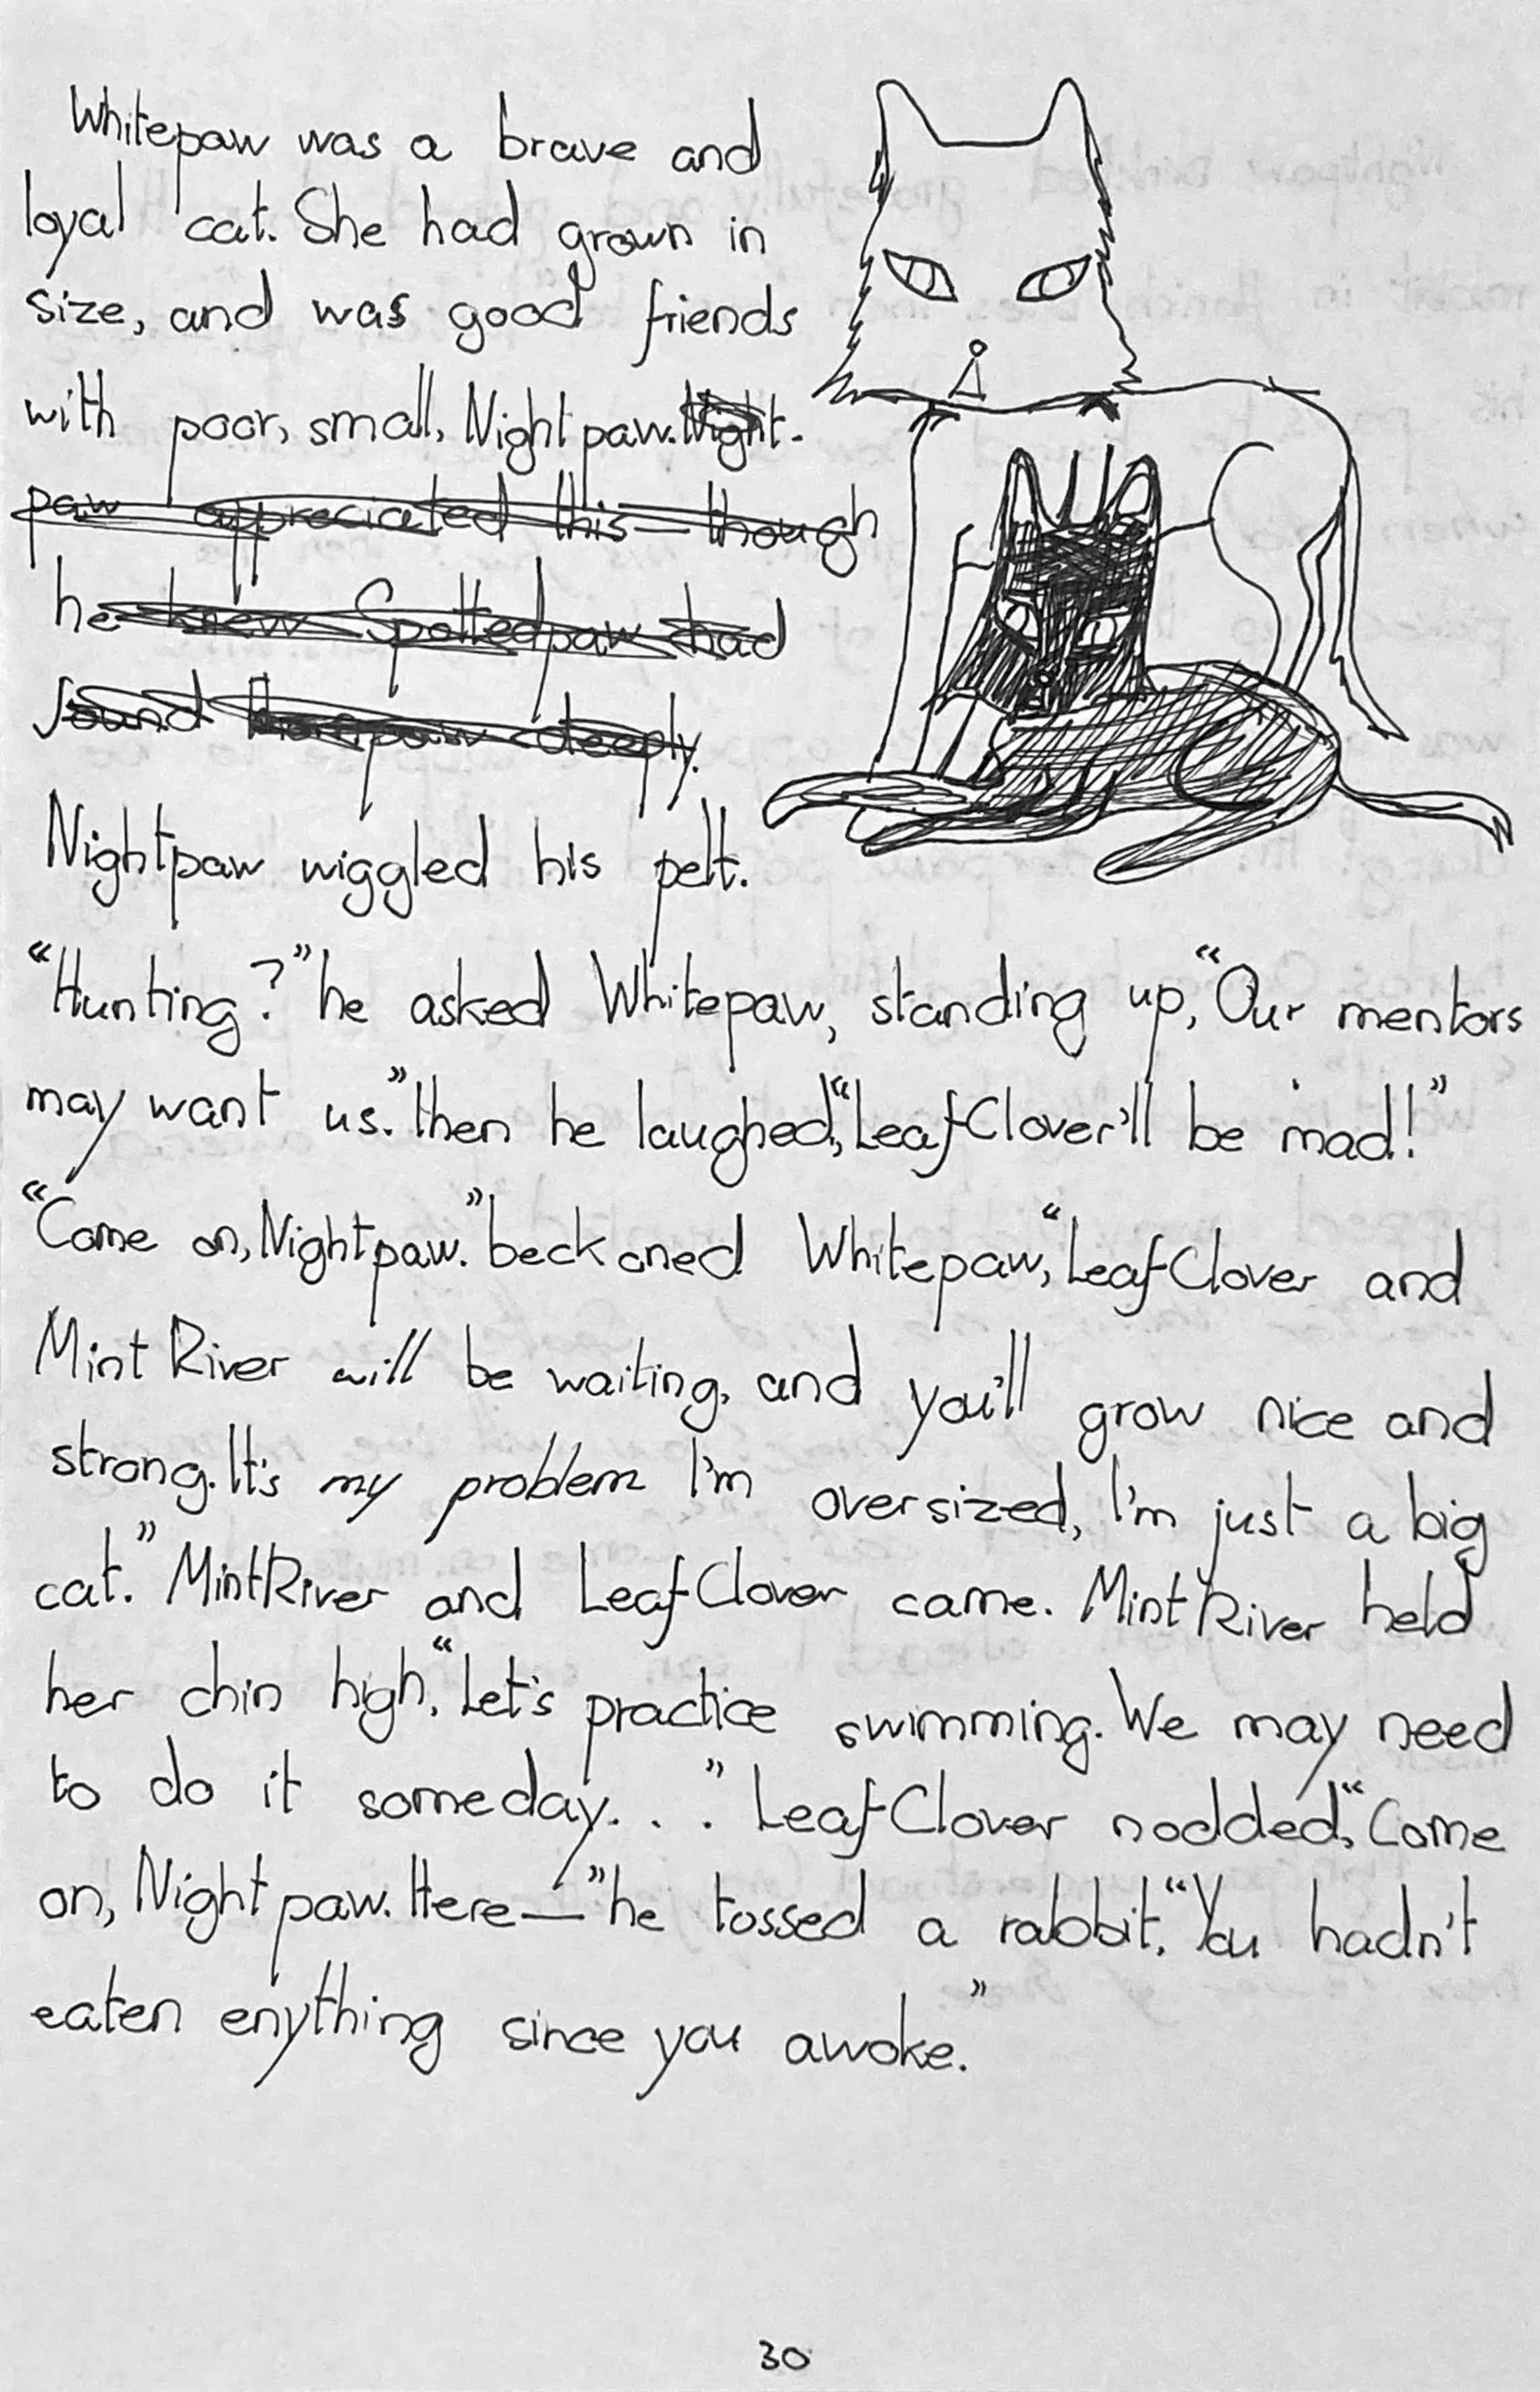 Whitepaw was a brave and
loyal cat. She had grown in
size, and was good friends
with poor, small, Nightpaw. Night-
paw appreciated this—though
he knew Spottedpaw had
found deeply.
Nightpaw wiggled his pelt.
“Hunting?” he asked Whitepaw, standing up, “Our mentors
may want us.” then he laughed, “LeafClover'll be mad!”
“Come on, Nightpaw.” beckoned Whitepaw, “LeafClover and
MintRiver will be waiting, and you'll grow nice and
strong. It's my problem I'm oversized, I'm just a big
cat.” MintRiver and LeafClover came. MintRiver held
her chin high, “Let's practice swimming. We may need
to do it someday. . .” LeafClover nodded, “Come
on, Nightpaw. Here—” he tossed a rabbit, “You hadn't
eaten enything since you awoke.”
30